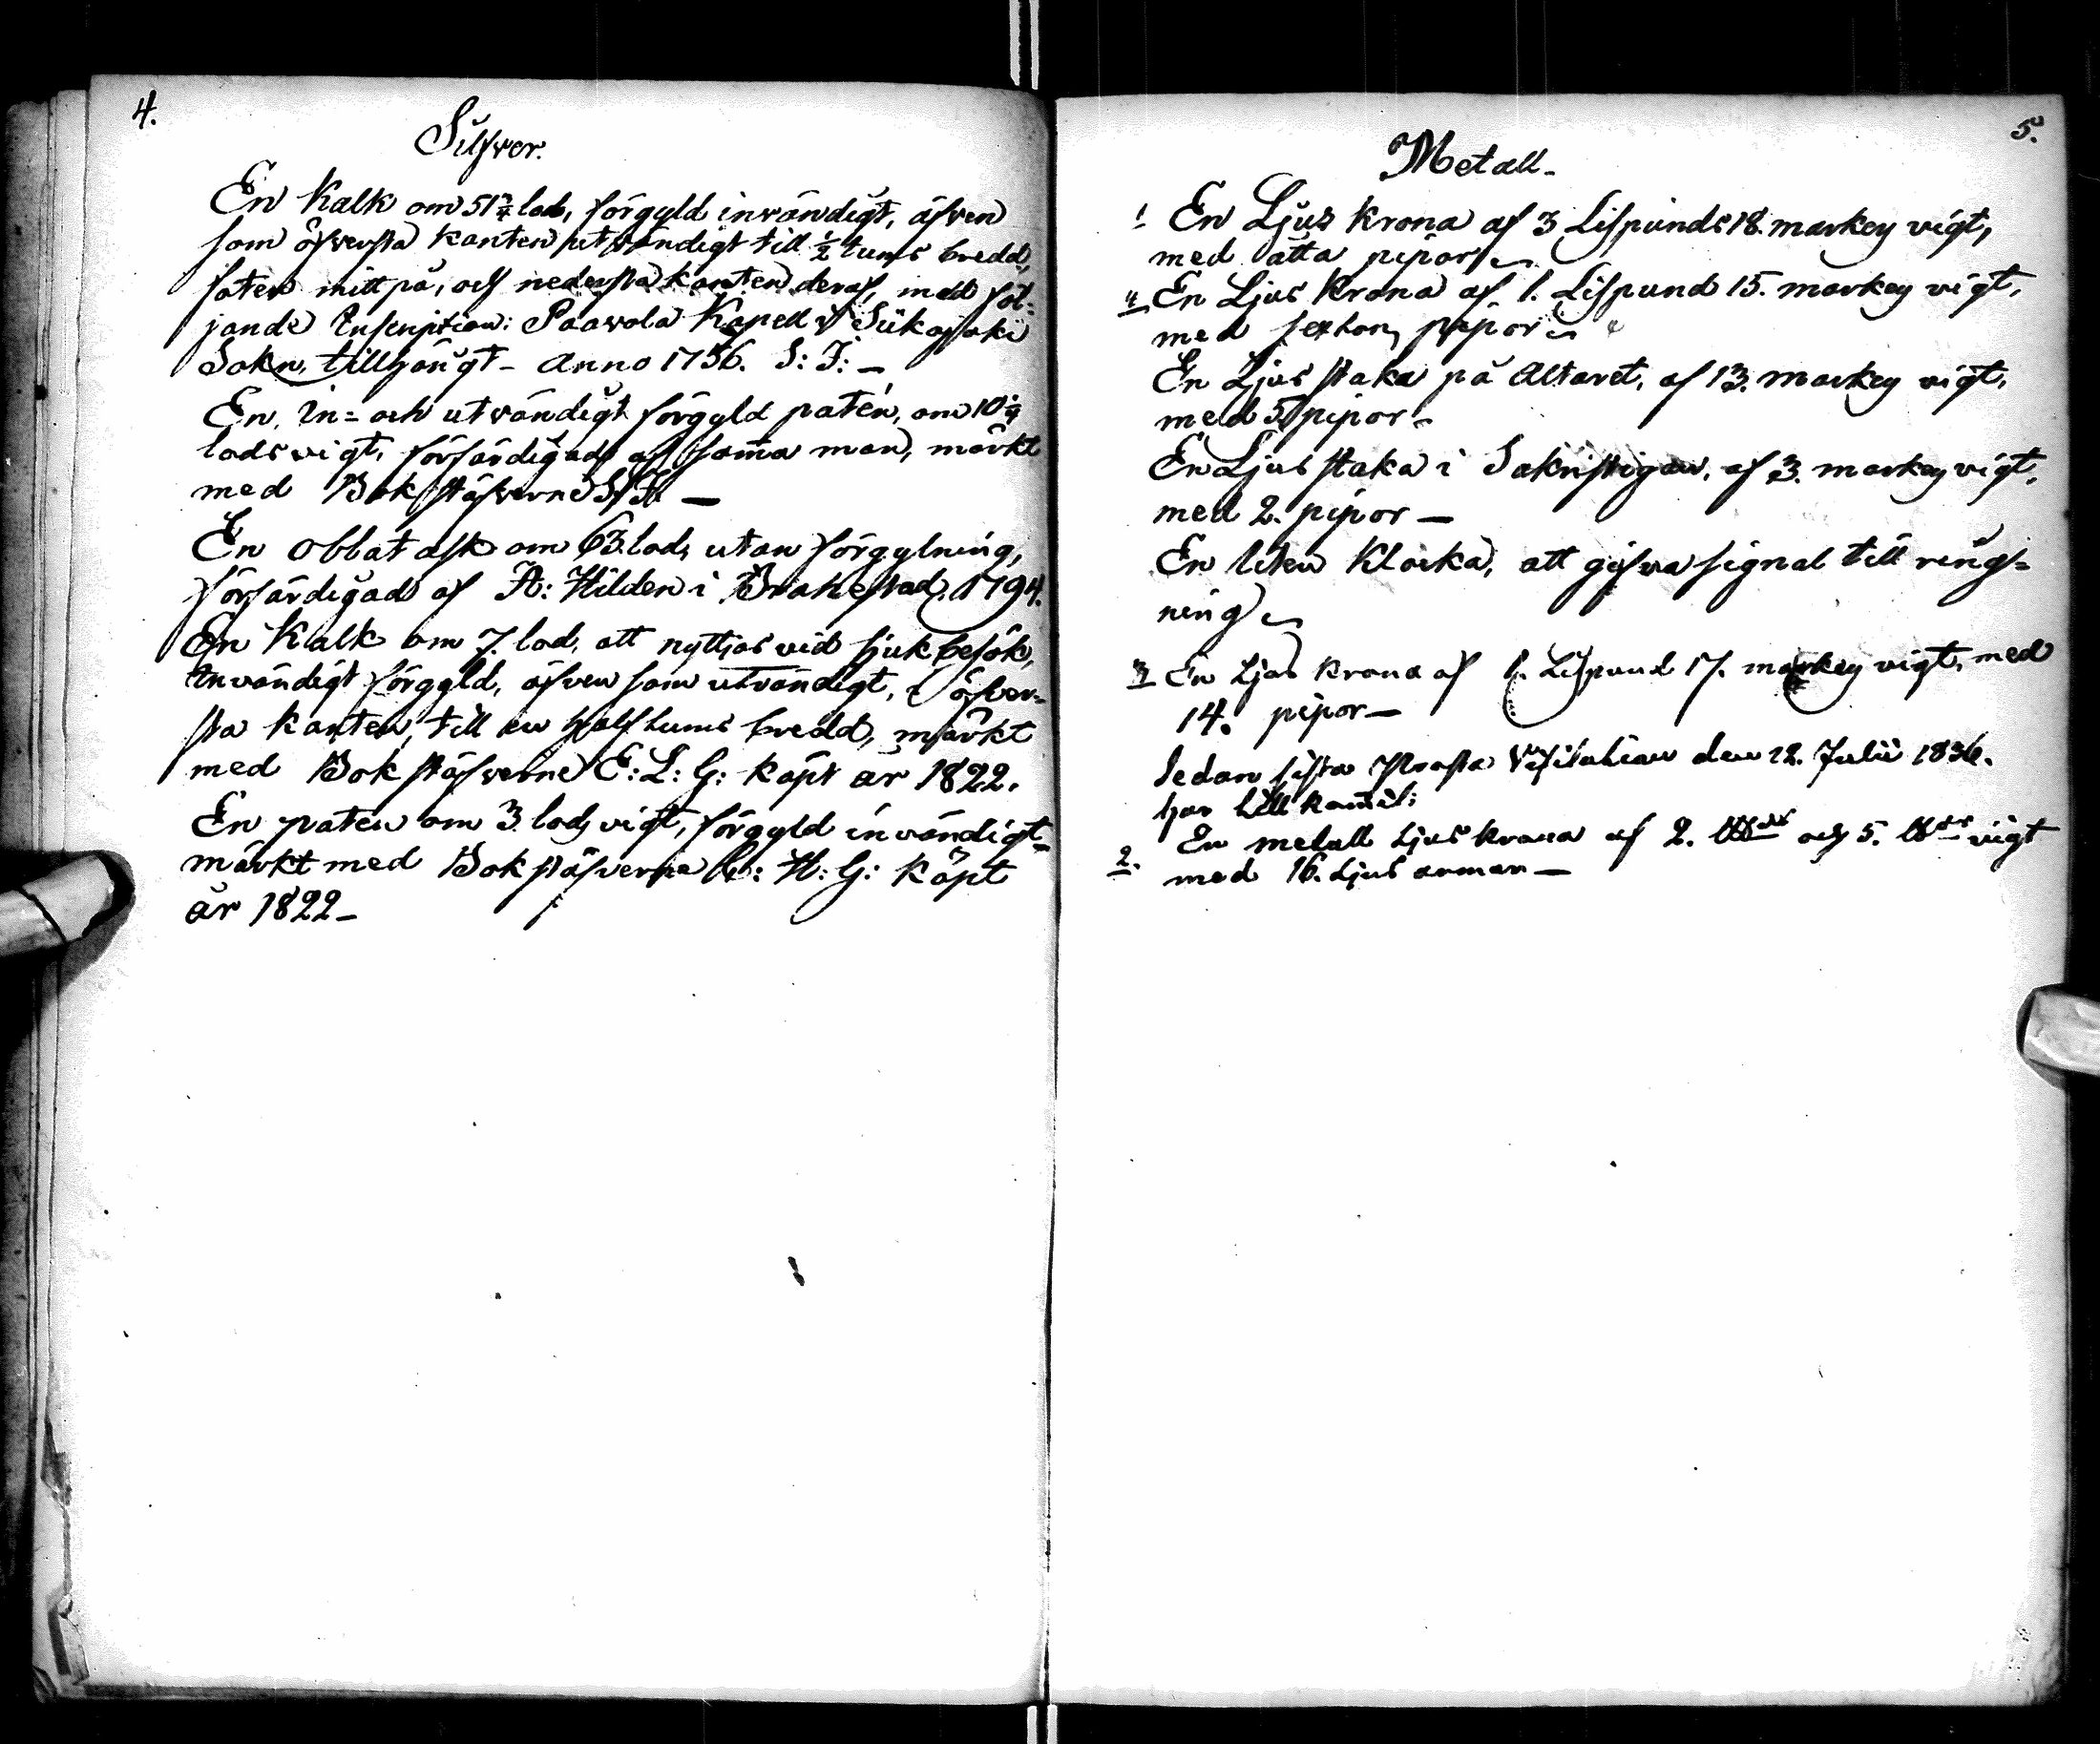 4.
Silfver.
En Kalk om 51 3/4 lod, förgyld invändigt, äfven
som öfversta kanten utvändigt till 1/2 tums bredd,
foten mitt på, och nedersta kanten deraf, med föl-
jande Inscription: Paavola Kapell i Siikajoki
Sokn, tillhörigt - Anno 1756. S: F: -
En, in= och utvändigt förgyld paten, om 10
lods vigt, förfärdigad af samma man, märkt
med Bokstäfverne S: F: -
En Oblat ask om 63 lod, utan förgylning,
förfärdigad af A: Hilden i Brahestad. 1794.
En Kalk om 7. lod, att nyttjas vid sjukbesök,
invändigt förgyld, äfven som utvändigt, i öfver-
sta kanten, till en half tums bredd, märkt
med Bokstäfverne E: L: G: köpt år 1822.
En paten om 3 lods vigt, förgyld invändigt-
märkt med Bokstäfverne H: G: köpt
år 1822-
5.
Metall-
1 En Ljus krona af 3 Lispunds 18. markers vigt,
med åtta pipor
4 En Ljus Krona af 1. Lispund 15. markers vigt,
med sexton pipor
En Ljus staka på Altaret, af 13. markers vigt,
med 5 pipor
En Ljus staka i Sakristigan, af 3. markers vigt,
med 2. pipor -
En liten Klocka, att gifva signal till ring=
ning
3 En Ljus krona af 1. Lispund 17. markers vigt, med
14. pipor-
Sedan sista Prosta Visitation den 12. Julii 1836.
har tillkommit:
2. En metall Ljus krona af 2. och 5. vigt
med 16. Ljus armar-